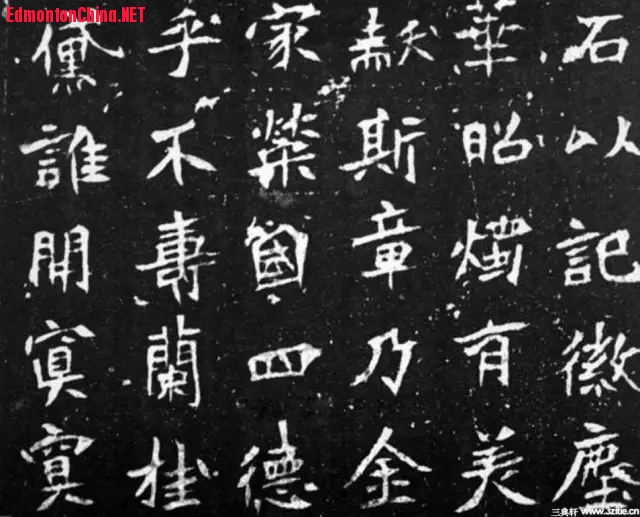 EdmontonChina.NET
石以記徽塵
華昭燭有美
斯章乃金
家榮國四德
乎不壽蘭桂
誰開冥冥
www.3zitie.cn